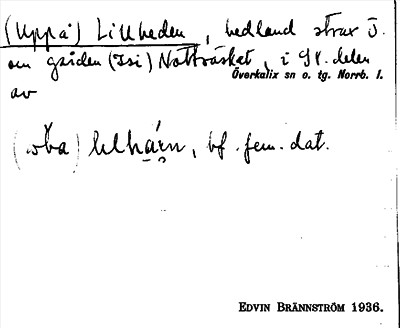 (Uppå) Lillheden, hedland strax ö.
om gården (Isi) Nattråsket, i SV. delen
Överkalix sn o. tg. Norrb. l.
av
lılhárn, bf. fem. dat.
EDVIN BRÄNNSTRÖM 1936.